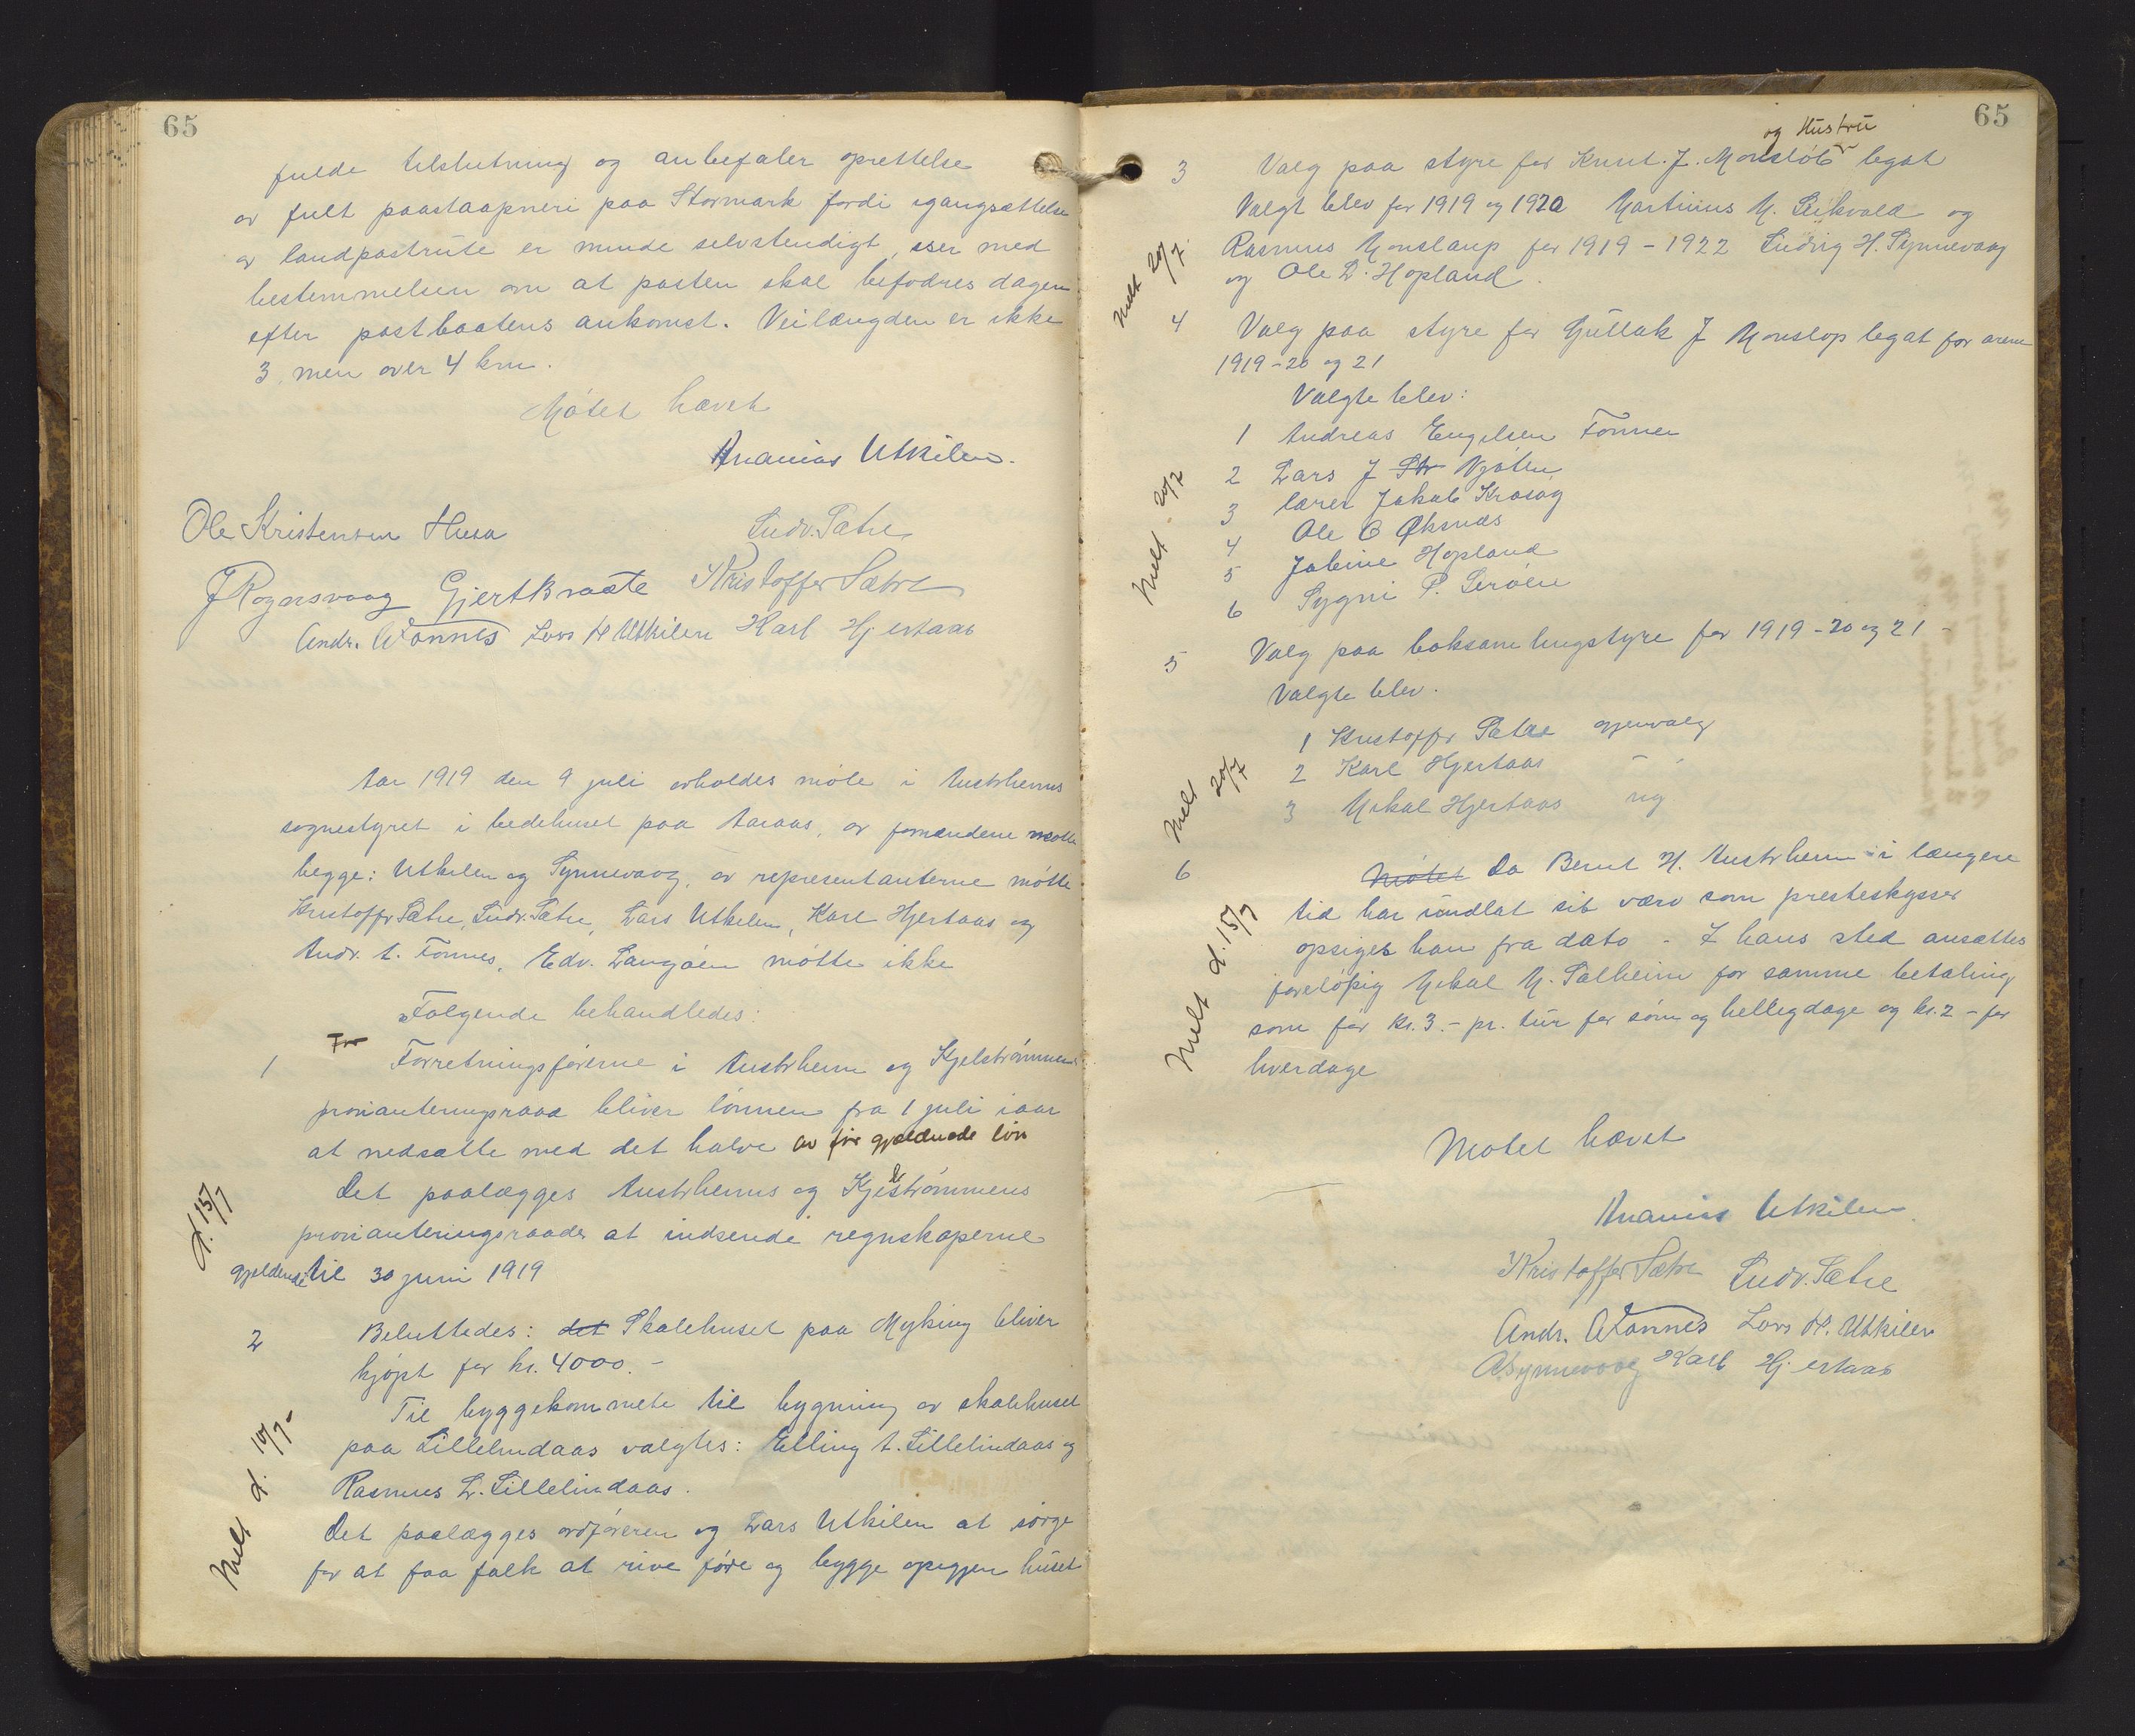 65
fulde tilslutning og anbefaler oprettelse
av fult paastaapneri paa Stormark fordi igangsættelse
av landpostrute er minde selvstendigt, især med
bestemmelsen om at posten skal befodres dagen
efter postbaatens ankomst. Veilængden er ikke
3, men over 4 km.
Møtet hævet
Ananias Utkilen.
Ole Kristensen Husa Ludv. Sætre
J Rognsvaag Gjert Kraate Kristoffer Sætre
Andr. A Fonnes Lars H Utkilen Karl Hjertaas
Aar 1919 den 9 juli avholdes møte i Austrheims
sognestyret i bedehuset paa Aaraas, av formændene møtte
begge: Utkilen og Synnevaag, av representanterne møtte
Kristoffer Sætre, Ludv. Sætre, Lars Utkilen, Karl Hjertaas og
Andr. A. Fonnes, Edv. Langøen møtte ikke
Følgende behandledes:
1 For Forretningsførerne i Austrheim og Kjelstrømmens
provianteringsraad bliver lønnen fra 1 juli iaar
at nedsætte med det halve av før gjældnede løn
Det paalægges Austrheims og Kjelstrømmens
provianteringsraader at indsende regnskaperne
gjeldende til 30 juni 1919
d. 15/7
2 Beluttedes: det Skolehuset paa Myking bliver
kjøpt for kr. 4000.-
Til byggekommete til bygning av skolehuset
paa Lillelindaas valgtes: Elling A. Lillelindaas og
Rasmus L. Lillelindaas.
Det paalægges ordføreren og Lars Utkilen at sørge
for at faa folk at rive føre og bygge opigjen huset
Melt d. 10/7
65
og Hustru
3 Valg paa styre for Knut. J. Monsløb legat
Valgt blev for 1919 og 1920 Martinus M. Leikvold og
Rasmus Monslaup for 1919 - 1922 Ludvig H. Synnevaag
og Ole L. Hopland.
Melt 20/7
4 Valg paa styre for Gullak J Monslop legat for arene
1919 - 20 og 21
Valgte blev:
1 Andreas Engelsen Fonnes
2 Lars J Str Njøten
3 lærer Jakob Krosøg
4 Ole O Øksnæs
5 Jabine Hopland
6 Sygni P. Serøen
Melt 20/7
5 Valg paa boksamlingstyre for 1919 - 20 og 21 -
Valgte blev.
1 Kristoffer Sætre gjenvalg
2 Karl Hjertaas - -
3 Mikal Hjertaas ny
Melt 20/7
6 Møtet Da Bernt H. Austrheim i længere
tid har undlat sit værv som presteskysser
opsiges han fra dato - I hans sted ansættes
foreløpig Mikal M. Solheim for samme betaling
som før kr. 3.- pr. tur for søn og helligdage og kr. 2 - for
hverdage
Melt d. 15/7
Motet hævet
Ananias Utkilen
Kristoffer Sætre Ludv. Sætre
Andr. A Fonnes Lars H. Utkilen
A Synnevaag Karl Hjertaas